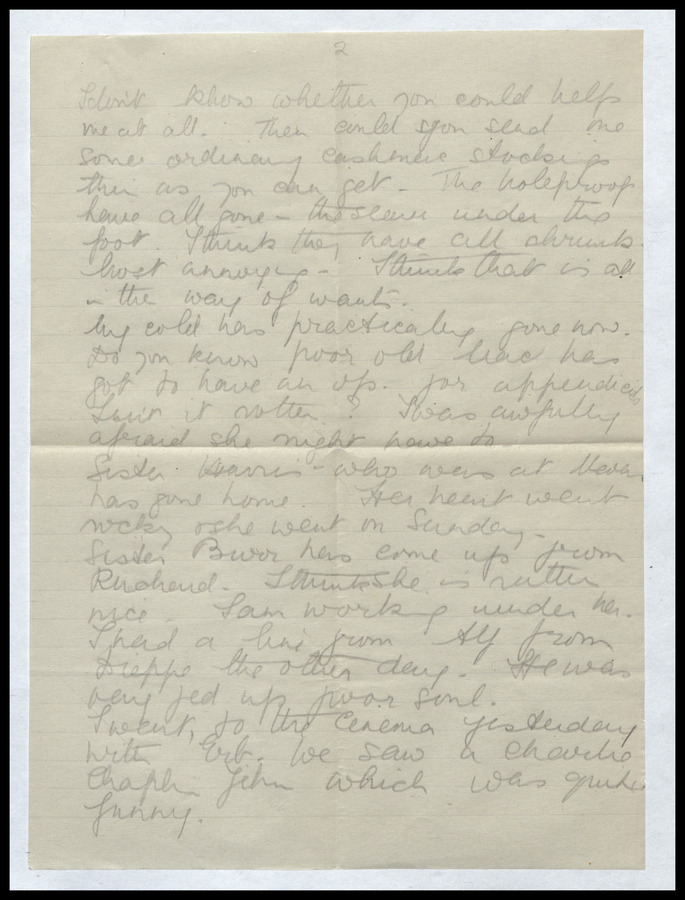 2
I don't know whether you could help
me at all. Then could you send me
some ordinary cashmere stockings
thin as you can get - The holeproof
have all gone - the sewn under the
foot. I think they have all shrunk.
Most annoying - I think that is all
in the way of wants.
My cold has practically gone now.
Do you know poor old Mac has
got to have an op. for appendicitis
Isn't it rotten? I was awfully
afraid she might have to
Sister Harris - who was at
has gone home. Her heart went
rocky & she went on Sunday -
Sister Burr has come up from
- I think she is rather
nice. I am working under her.
I had a line from Alf from
Dieppe the other day. He was
very fed up poor soul.
I went to the Cenema yesterday
with We saw a Charlie
Chaplin film which was quite
funny.